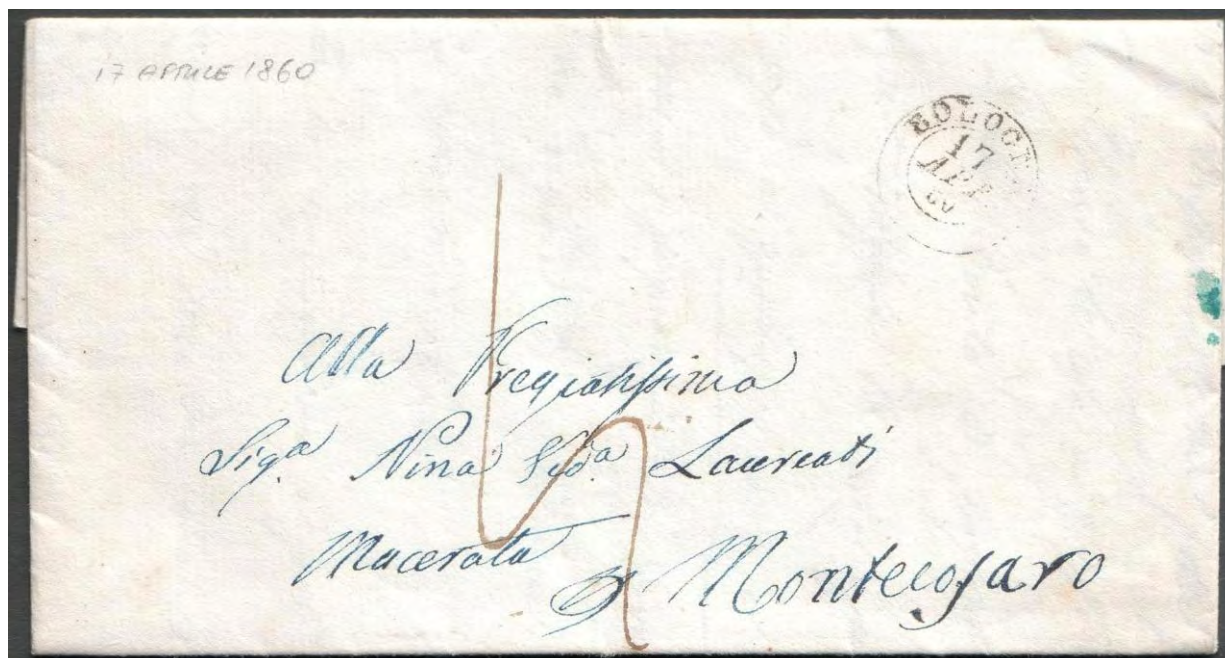 17 APRILE 1860
BOLOGNA
17
APR
60
Alla Pregiatissima
Sig.ª Nina Ved.ª Laureati
Macerata p Montecosaro